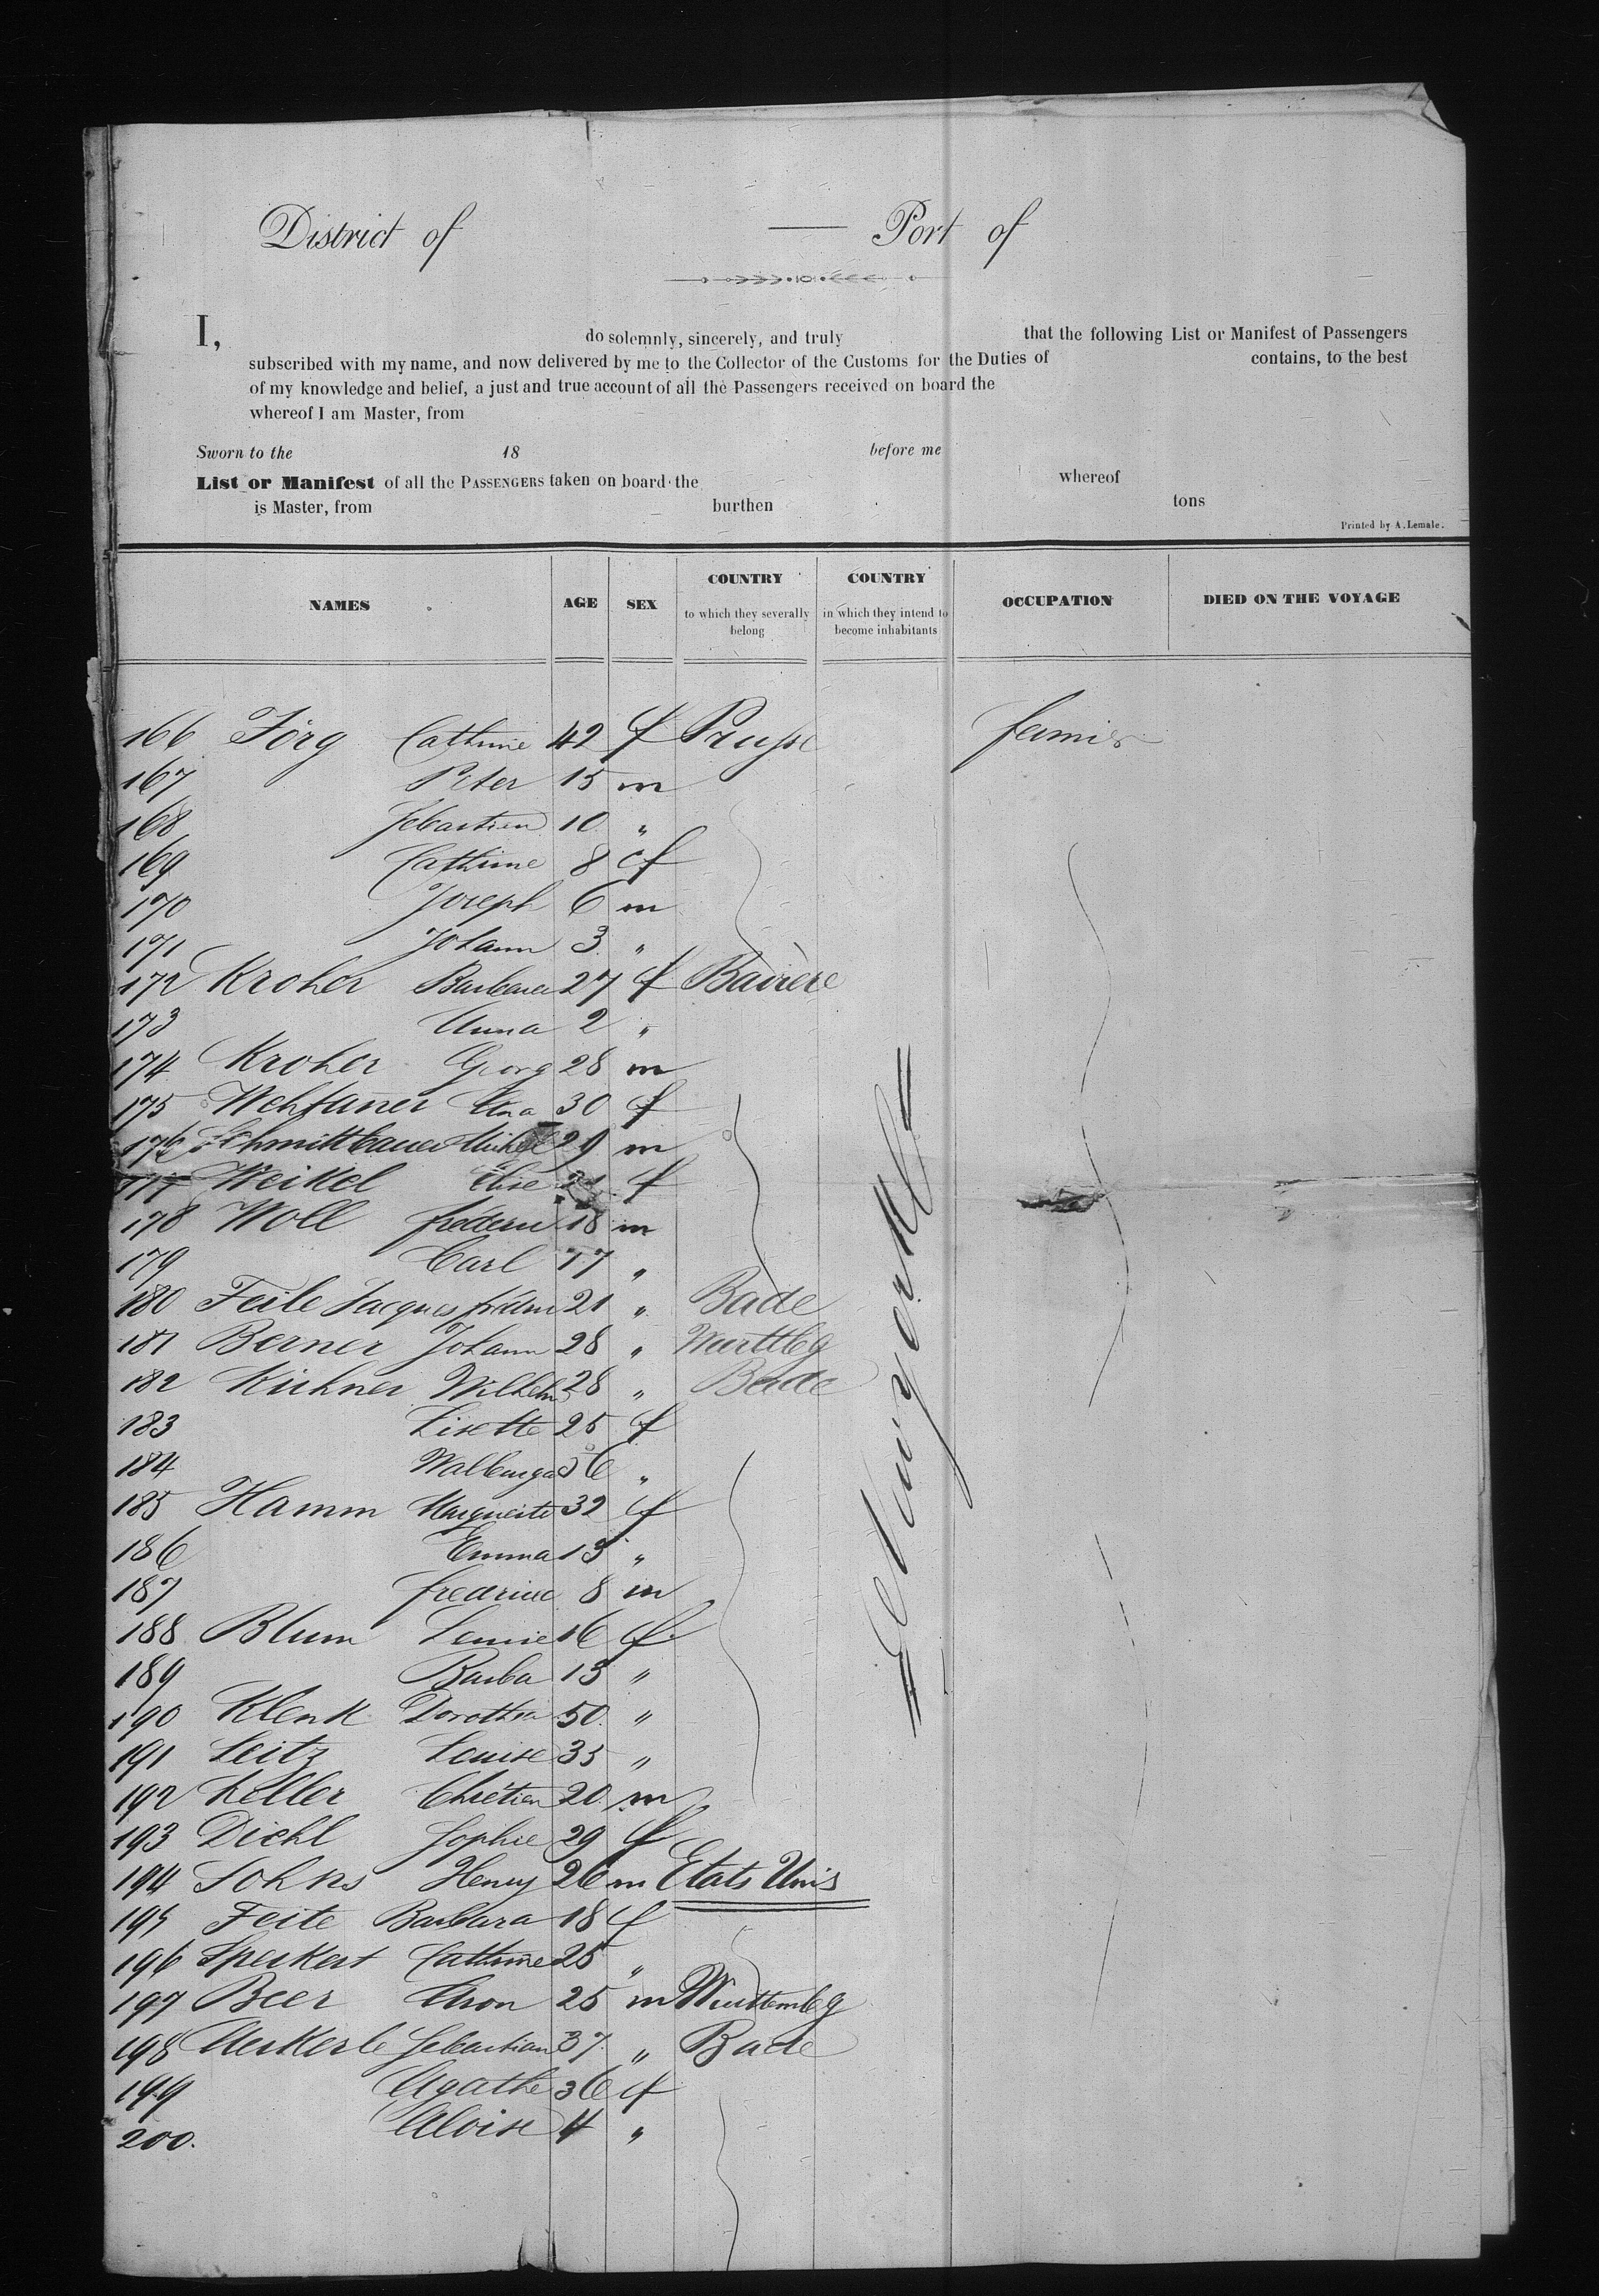 District of — Port of
I, do solemnly, sincerely, and truly that the following List or Manifest of Passengers
subscribed with my name, and now delivered by me to the Collector of the Customs for the Duties of contains, to the best
of my knowledge and belief, a just and true account of all the Passengers received on board the
whereof I am Master, from
Sworn to the 18 before me
List or Manifest of all the PASSENGERS taken on board the whereof
is Master, from burthen tons
Printed by A. Lemale.
NAMES AGE SEX COUNTRY to which they severally belong COUNTRY in which they intend to become inhabitants OCCUPATION DIED ON THE VOYAGE
166 Jörg Cathrine 42 f Prusse
167 Peter 15 m
168 Sebastien 10 "
169 Cathrine 8 f
170 Joseph 6 m
171 Johann 3 "
172 Kroher Barbara 27 f Bavière
173 Anna 2 "
174 Kroher Georg 28 m
175 30 f
176 Schmittbauer Michel 29 m
177 Weikel Elise 21 f
178 Woll 18 m
179 Carl 17 "
180 Feile Jacques 21 " Bade
181 Berner Johann 28 " Wurttbg
182 Wilhelm 28 " Bade
183 Lisette 25 f
184 Walburga "
185 Hamm Marguerite 32 f
186 Emma 13 "
187 8 m
188 Blum Louise 16 f
189 Barba 13 "
190 Klenk Dorothea 50 "
191 Seitz Louise 35 "
192 Keller Chrétien 20 m
193 Diehl Sophie 29 f
194 Johns Henry 26 m Etats Unis
195 Feite Barbara 18 f
196 Cathrine 25 "
197 Beer Aron 25 m Wurttembg
198 Sebastian 37 " Bade
199 Agathe 36 f
200. Aloise 4 "